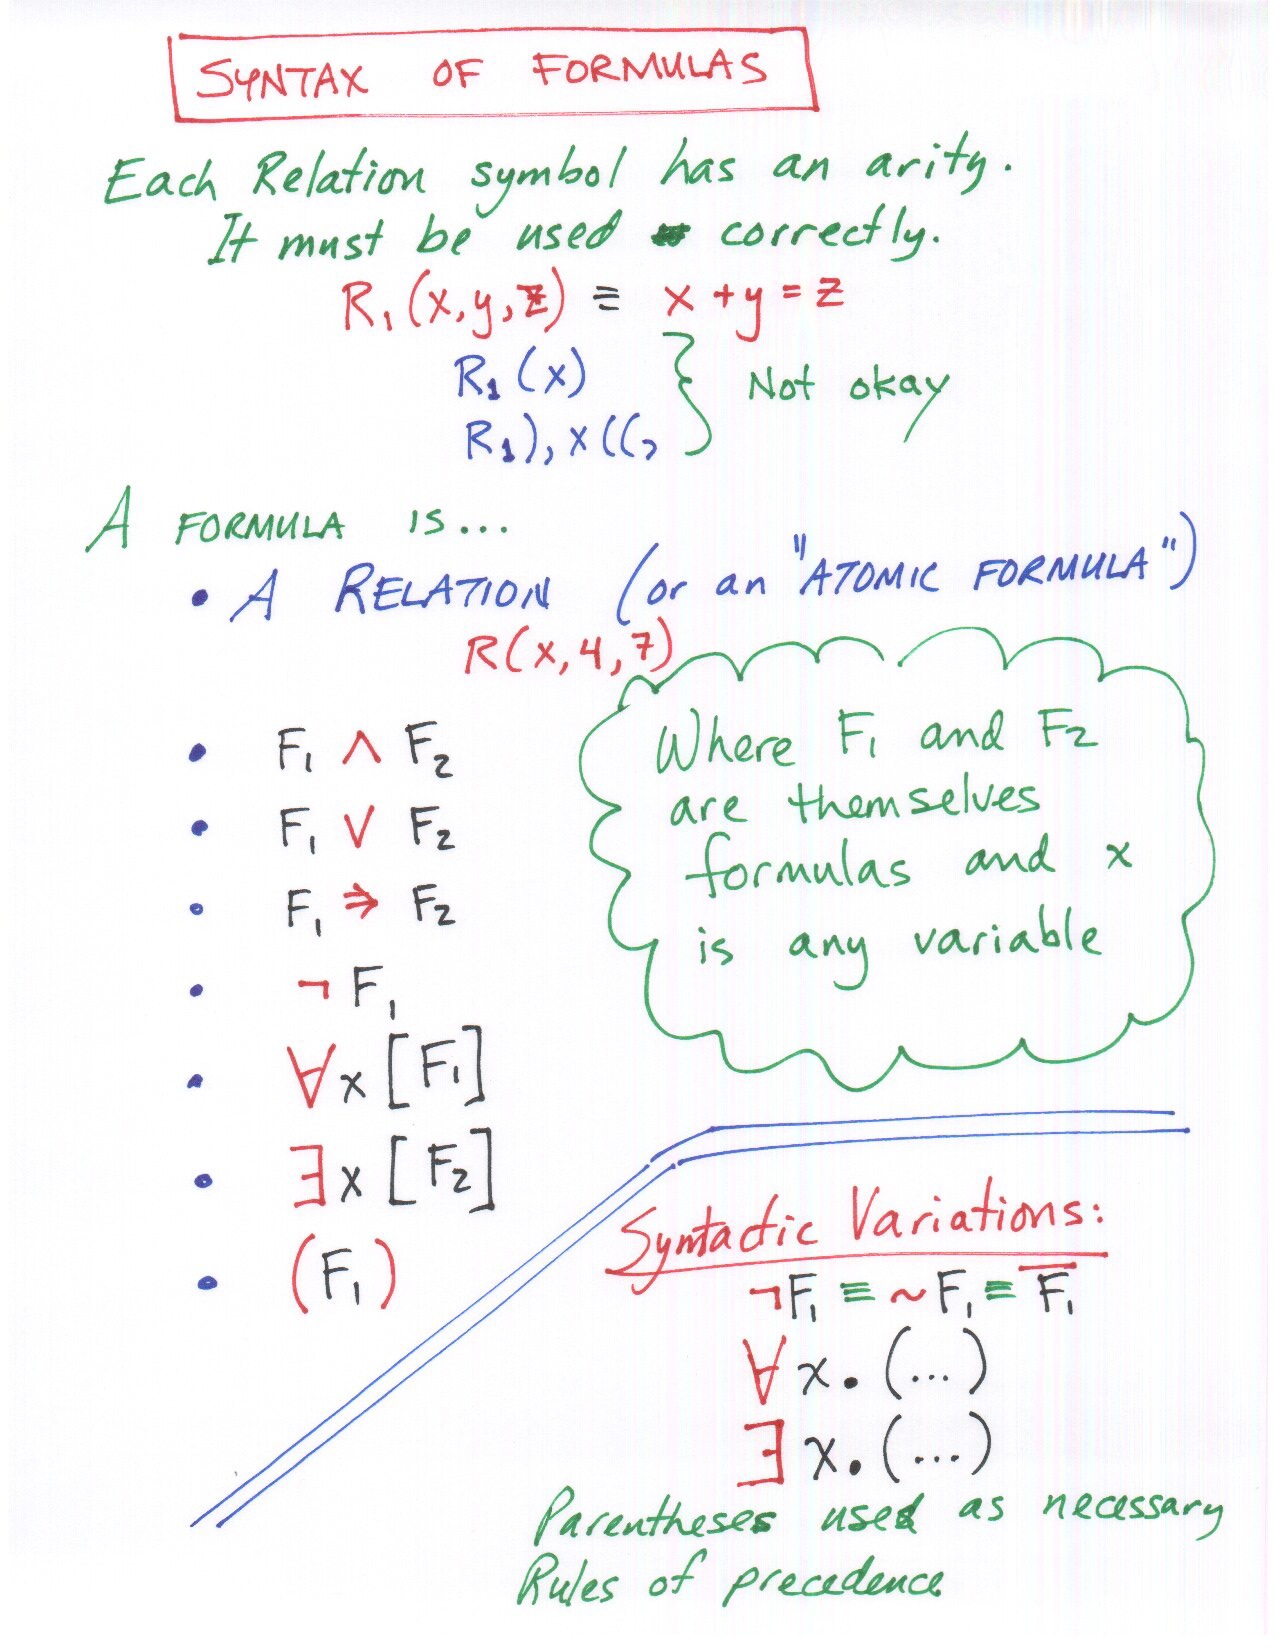 SYNTAX OF FORMULAS
Each Relation symbol has an arity.
It must be used correctly.
R₁(x,y,z) ≡ x+y=z
R₁(x)
R₁),x((,
Not okay
A FORMULA IS...
• A RELATION (or an "ATOMIC FORMULA")
R(x,4,7)
• F₁ ∧ F₂
• F₁ ∨ F₂
• F₁ ⇒ F₂
• ¬F₁
• ∀x[F₁]
• ∃x[F₂]
• (F₁)
Where F₁ and F₂
are themselves
formulas and x
is any variable
Syntactic Variations:
¬F₁ ≡ ~F₁ ≡ F̅₁
∀x.(...)
∃x.(...)
Parentheses used as necessary
Rules of precedence